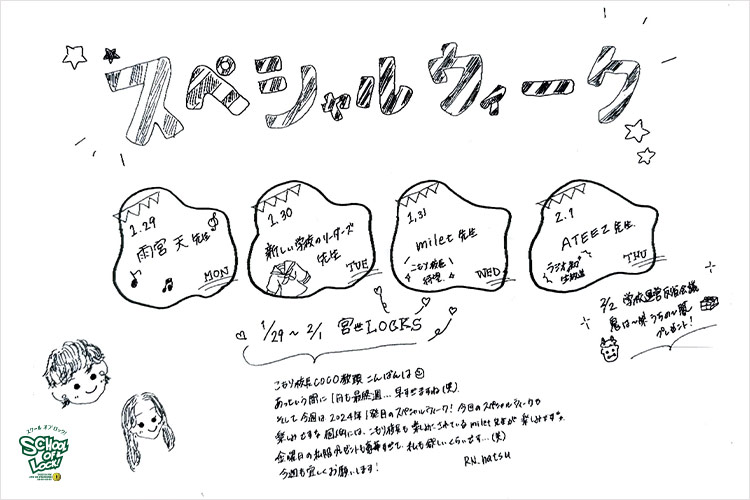 スペシャルウィーク
1.29
雨宮 天 先生
MON
1.30
新しい学校のリーダーズ
先生
TUE
1.31
milet 先生
こもり校長
待望
WED
2.1
ATEEZ 先生
ラジオ初
生放送
THU
1/29〜2/1 宮世LOCKS
2/2 学校運営反省会議
鬼は〜外 うちの〜鬼
プレゼント!
こもり校長COCO教頭こんばんは
あっという間に1月も最終週...早すぎますね(笑)
そして今週は2024年1発目のスペシャルウィーク!今日のスペシャルウィークも
楽しみですな 個的には、こもり校長も楽しみにされているmilet先生が楽しみです。
金曜日の私服プレゼントも豪華すぎて、私も欲しいくらいです...(笑)
今週も宜しくお願いします!
RN.natsu
スクール オブ ロック!
SCHOOL
OF
LOCK!